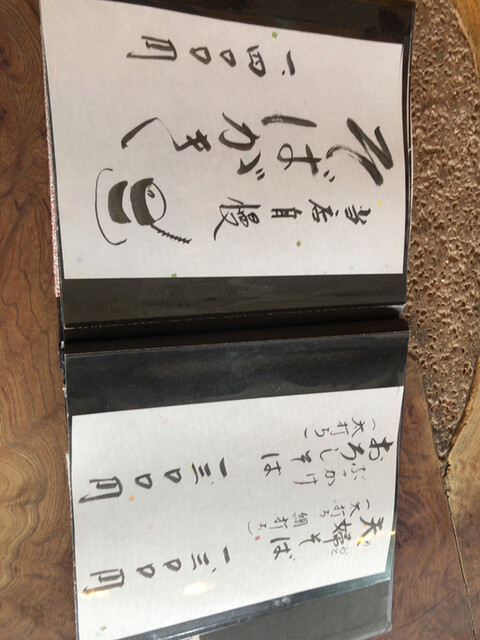 めおと
夫婦そば
太打ち
細打ち
一、三〇〇円
ぶっかけ
おろしそば
太打ち
一、三〇〇円
当店自慢
そばがき
一、四〇〇円